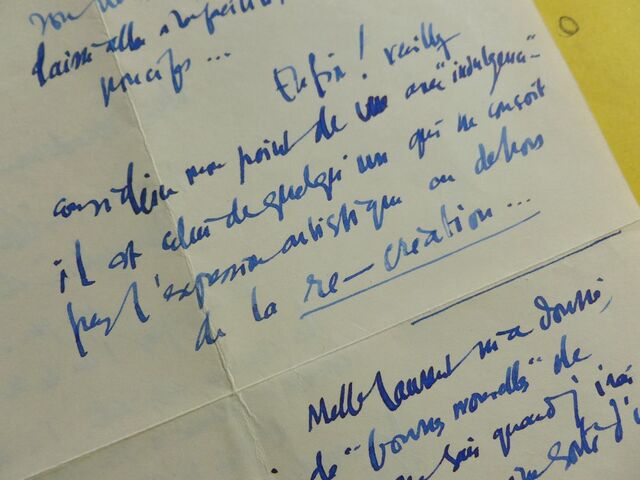 laissé aller
poncifs...
Enfin ! veuillez
considérer mon point de vue avec "indulgence"
il est celui de quelqu'un qui ne conçoit
pas l'expression artistique en dehors
de la re-création...
Melle Laurent m'a donné,
de "bonnes nouvelles" de
sais quand j'irai
sorte d'